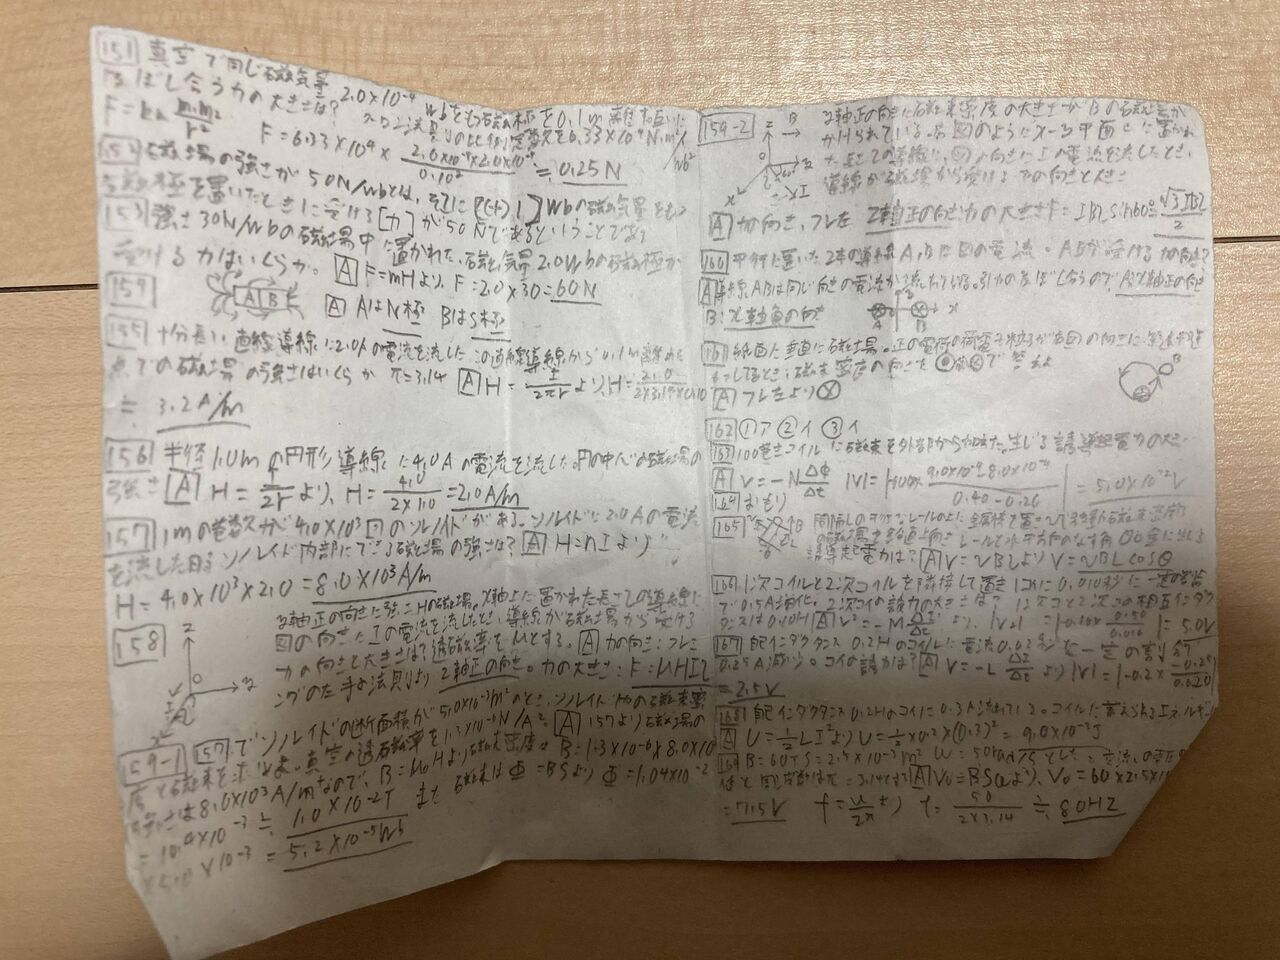 151 真空で同じ磁気量 2.0×10⁻⁴ Wbをもつ磁極を0.1m離すと互いに
およぼし合う力の大きさは? クーロン法則の比例定数を6.33×10⁴N・m²/Wb²
F=km m₁m₂/r²  F=6.33×10⁴× 2.0×10⁻⁴×2.0×10⁻⁴/0.10² ≒0.25N
152 磁場の強さが50N/wbとは, そこに[(+)1]Wbの磁気量をもつ
磁極を置いたときに受ける[力]が50Nであるということである
153 強さ30N/Wbの磁場中に置かれた, 磁気量2.0Wbの磁極が
受ける力はいくらか。 A F=mHより, F=2.0×30=60N
154 A B A AはN極 BはS極
155 十分長い直線導線に2.0Aの電流を流した この直線導線から0.1m離れた
点での磁場の強さはいくらか π=3.14 A H=I/2πrより, H=2.0/2×3.14×0.10
≒3.2A/m
156 半径1.0mの円形導線に4.0Aの電流を流した。円の中心の磁場の
強さ A H=I/2rより, H=4.0/2×1.0=2.0A/m
157 1mの巻数が4.0×10³回のソレノイドがある。ソレノイドに2.0Aの電流
を流した時ソレノイド内部にできる磁場の強さは? A H=nIより
H=4.0×10³×2.0=8.0×10³A/m
158 z y x I y軸正の向きに強さHの磁場。x軸上に置かれた長さLの導線に
図の向きにIの電流を流したとき, 導線が磁場から受ける
力の向きと大きさは? 透磁率をμとする。 A 力の向き:フレミ
ングの左手の法則より z軸正の向き。力の大きさ:F=μHIL
159-1 157でソレノイドの断面積が5.0×10⁻³m²のとき, ソレノイド内の磁束密
度と磁束を求めよ。真空の透磁率を1.3×10⁻⁶N/A² A 157より磁場の
強さは8.0×10³A/mなので, B=μ₀Hより磁束密度は B=1.3×10⁻⁶×8.0×10³
=10.4×10⁻³≒1.0×10⁻²T また 磁束はΦ=BSより Φ=1.04×10⁻²
×5.0×10⁻³=5.2×10⁻⁵Wb
159-2 z B y x I y軸正の向きに磁束密度の大きさがBの磁場が
かけられている。右図のようにx-y平面上に置かれ
た長さLの導線に, 図の向きにIの電流を流したとき,
導線が磁場から受ける力の向きと大きさ
A 力の向き, フレ左 z軸正の向き 力の大きさ F=IBLsin60°=√3IBL/2
160 平行に置いた2本の導線A,Bに図の電流。ABが受ける力の向き?
A 導線ABは同じ向きの電流が流れている。引力をおよぼし合うので A:x軸正の向き
B:x軸負の向き A B x
161 紙面に垂直に磁場。正の電荷の荷電粒子が右図の向きに
しているとき, 磁束密度の向きを で答えよ
A フレ左より⊗
162 ①ア ②イ ③イ
163 100巻きコイルに磁束を外部から加えた。生じる誘導起電力の大
A V=-NΔΦ/Δt |V|= 9.0×10⁻⁴-8.0×10⁻⁴/0.40-0.20 =5.0×10⁻²V
164 おもり
165 間隔Lの平行なレールの上に金属棒を置き
レールと水平方向のなす角θ
誘導起電力は? A V=vBLより V=vBLcosθ
166 1次コイルと2次コイルを隣接して置き 1コイに0.010秒に一定の割合
で0.5A消化。2次コイの誘力の大きさは? 1次コと2次コの相互インダ
タンスは0.10H A V=-MΔI/Δtより, |V₂|=|-0.10× 0.50/0.010|=5.0V
167 自己インダクタンス0.2Hのコイルに電流0.02秒に一定の割合で
0.25A減少。コイの誘力は? A V=-L ΔI/Δtより |V|=|-0.2× -0.25/0.020|
=2.5V
168 自己インダクタンス0.2Hのコイに0.3A流れている。コイルに蓄えられるエネルギ
A U=½LI²より U=½×0.2×(0.3)²=9.0×10⁻³J
169 B=60T S=2.5×10⁻³m² ω=50rad/sとした 交流の電圧の
π=3.14とする A V₀=BSωより, V₀=60×2.5×10
=7.5V f=ω/2πより f=50/2×3.14≒8.0HZ